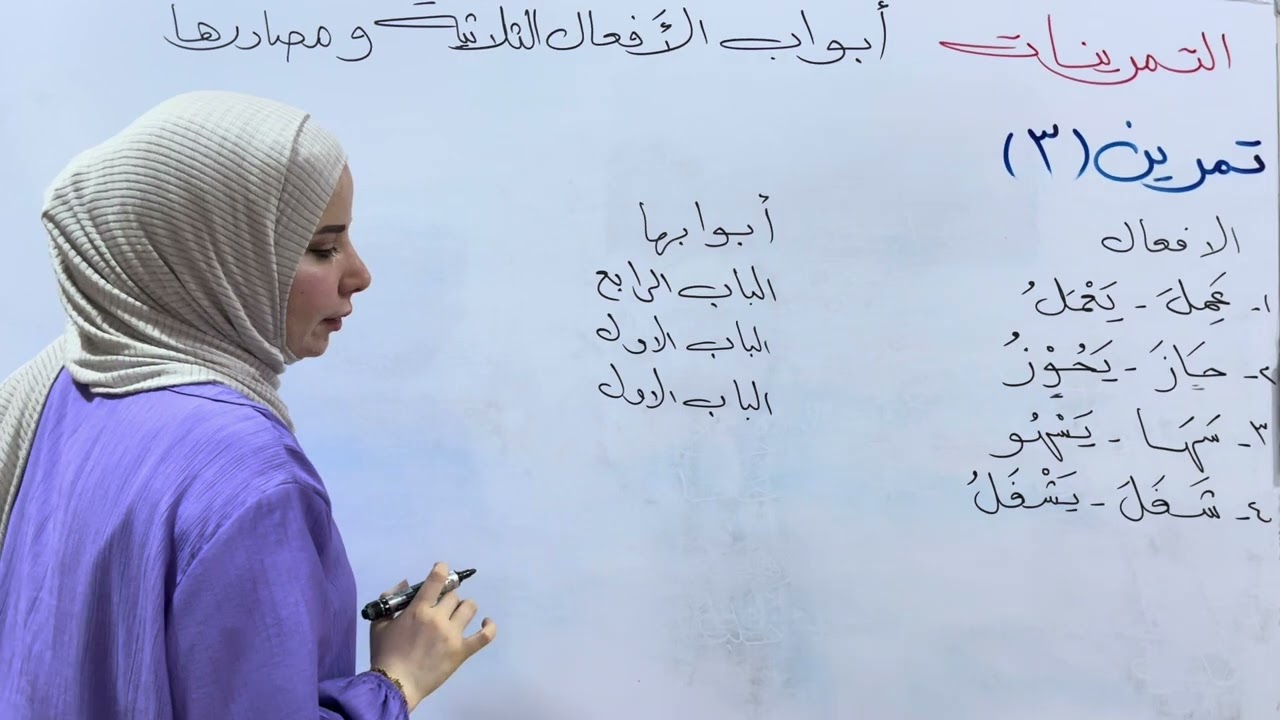 التمرينات أبواب الأفعال الثلاثية ومصادرها
تمرين (٣)
الافعال أبوابها
١- عَمِلَ - يَعْمَلُ الباب الرابع
٢- حَازَ - يَحُوْزُ الباب الاول
٣- سَهَا - يَسْهُو الباب الاول
٤- شَغَلَ - يَشْغَلُ